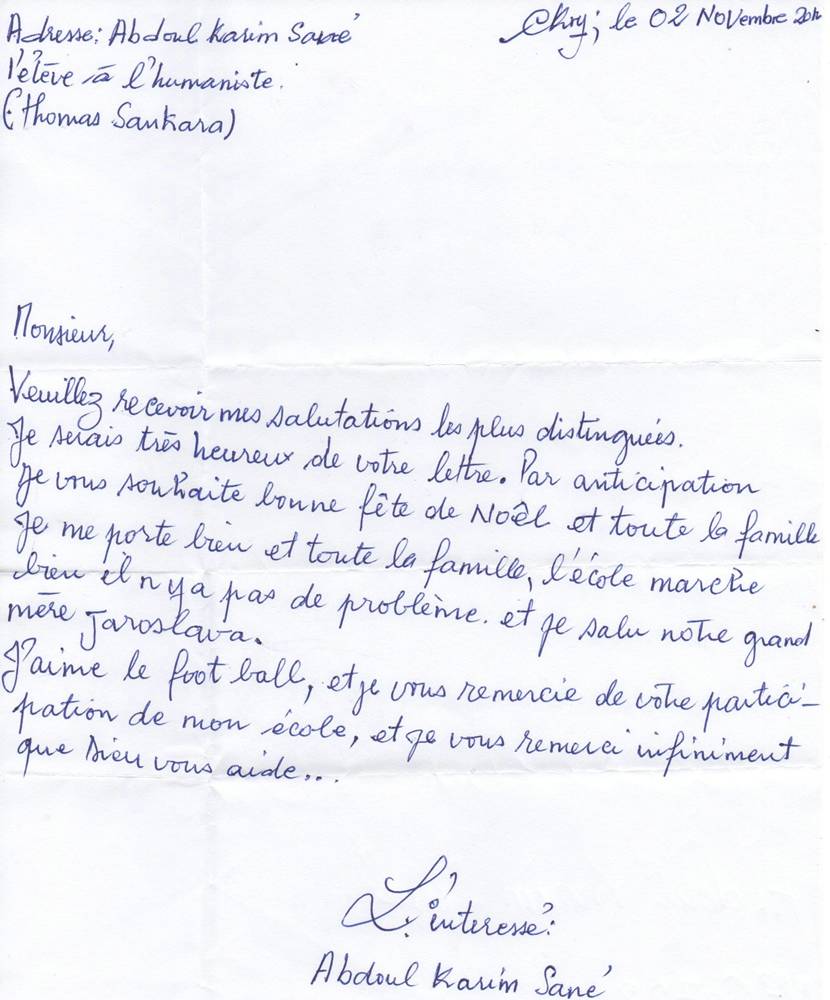 Adresse: Abdoul Karim Sané
, le 02 Novembre
l'élève à l'humaniste.
(Thomas Sankara)
Monsieur,
Veuillez recevoir mes salutations les plus distinguées.
Je serais très heureux de votre lettre. Par anticipation
Je vous souhaite bonne fête de Noêl et toute la famille
Je me porte bien et toute la famille, l'école marche
bien il n'ya pas de problème. et je salu notre grand
mère Jaroslava.
J'aime le foot ball, et je vous remercie de votre partici-
pation de mon école, et je vous remerci infiniment
que Dieu vous aide...
L'interessé:
Abdoul Karim Sané